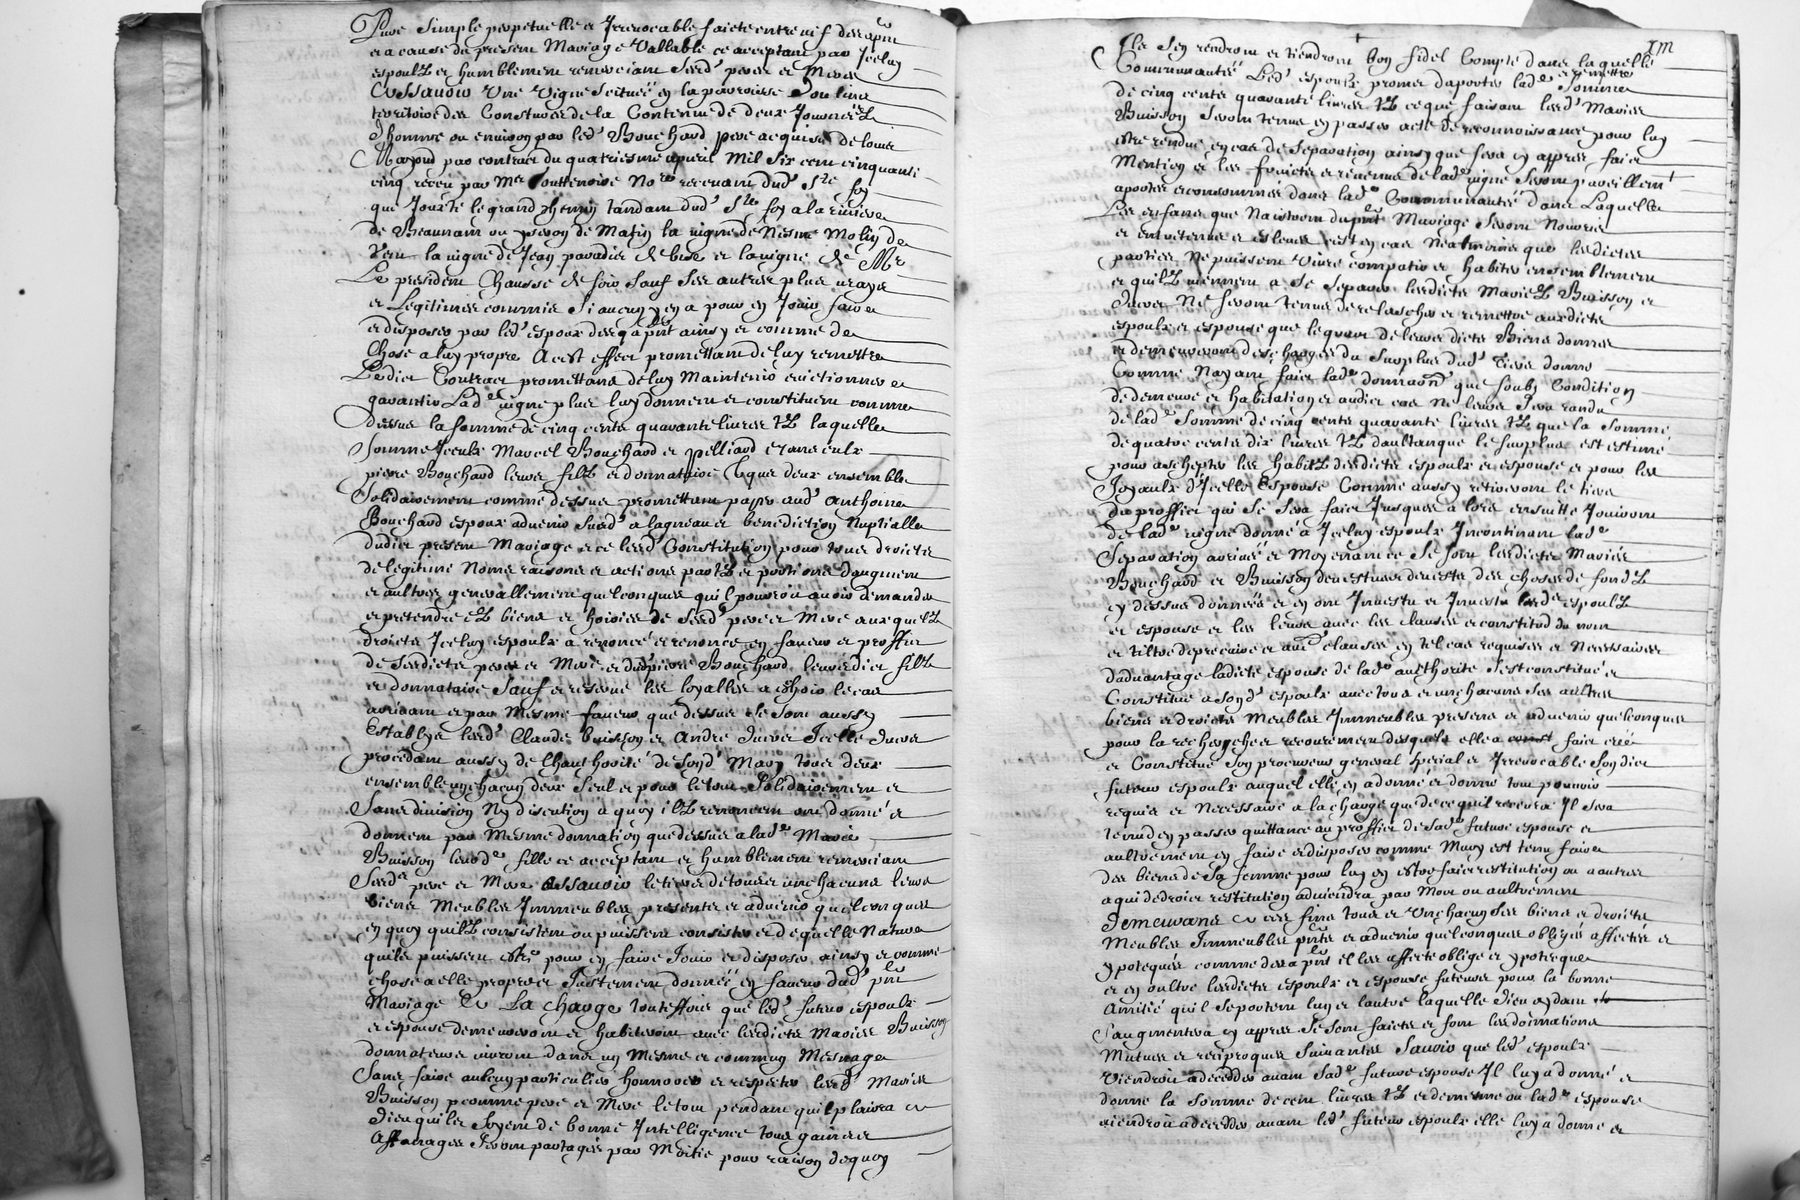 Pure Simple perpetuelle et Irrevocable faicte entre vif des apnt
et a cause du present Mariage Vallable ce acceptant par Icelluy
espoulx et humblement remerciant sesd pere et Mere
Assavoir Une Vigne scituée en la parroisse
territoire des de la Contenue de deux Journéés
d'homme ou environ par led Bouchard pere acquise de louis
par contract du quatriesme apvril Mil Six cent cinquante
cinq receu par Mre Nore recevant dud Sre foy
que Jouxte le grand chemin tandant dud Ste foy a la riviere
de Beaunant ou yseron de Matin la vigne de Mesme Molin de
Vent la vigne de Jean paradis de bise et la vigne de Mr
Le president Chausse de soir sauf ses autres plus vrays
et Legitimes confins Si aucuns y en a pour en Jouir faire
et disposer par led espoux des a pnt ainsy et comme de
Chose a luy propre A cest effect promettant de luy remettre
Ledict Contract promettans de luy Maintenir evictionner et
garantir Lad vigne plus luy donnent et constituent comme
dessus la somme de cinq cents quarante livres tz laquelle
somme Iceulx Marcel Bouchard et pelliard et avec eulx
pierre Bouchard leurs filz et donnataire Tous deux ensemble
Solidairement comme dessus promettent payer aud Anthoine
Bouchard espoux advenir Susd a la benediction Nuptialle
dudict present Mariage et ce lesd Constitution pour tous droicts
de legitime Noms raisons et actions partz et portions d'augment
et aultres generallement quelconques qu'il pourroit avoir demander
et pretendre ez biens et hoiries de sesd pere et Mere auxquelz
droicts Icelluy espoulx a renoncé et renonce en faveur et proffit
de sesdicts pere et Mere et dud pierre Bouchard leurdict filz
et donnataire sauf et reservé les loyalles eschoir le cas
advenant et par Mesme faveur que dessus Se sont aussy
Establys lesd Claude buisson et Andrée Duver Icelle Duver
procedant aussy de l'authorité de sond Mary tous deux
ensemble ung chacun deux seul et pour le tout Solidairement et
Sans division Ny discution a quoy ilz renoncent ont donné et
donnent par Mesme donnation que dessus a lad Marie
Buisson leurd fille ce acceptant et humblement remerciant
sesd pere et Mere Assavoir le tiers de tous et ung chacuns leurs
biens Meubles Immeubles presents et advenir quelconques
en quoy quilz consistent ou puissent consister et de quelle Nature
quils puissent estre pour en faire Jouir et disposer ainsy et comme
chose a elle propre et Justement donnéé en faveur dud pnt
Mariage Et a La Charge touteffois que led futur espoulx
et espouse demeureront et habiteront avec lesdicts Mariés Buisson
donnateurs vivront dans un Mesme et commun Mesnage
Sans faire aulcun particulier honnorer et respecter lesd Mariés
Buisson comme pere et Mere le tout pendant quil plaira a
dieu quils Soyent de bonne Intelligence tous gaings et
Affanages seront partagés par Moitié pour raison de quoy
IIII
Ils s'en rendront et tiendront bon fidel Compte dans laquelle
Communauté Led espoulx promet d'apporter et remettre lad Somme
de cinq cents quarante livres tz ce que faisant lesd Mariés
Buisson seront tenus en passer acte de reconnoissance pour luy
estre rendue en cas de separation ainsy que sera cy appres faict
Mention et les fruicts et revenus de lad vigne seront pareillement
apportés et consommés dans lad Communauté dans Laquelle
Les enfans que Naistront du pnt Mariage seront Nourris
et entretenus et eslevés et en cas Neantmoins que lesdictes
parties Ne puissent Vivre compatir et habiter ensemblement
et quilz viennent a Se Separer lesdicts Mariez Buisson et
Duver Ne seront tenus de relascher et remettre auxdicts
espoulx et espouse que le quart de leursdicts Biens donnés
et demeureront deschargés du surplus dud Tiers donné
Comme N'ayant faict lad donnaon que soubz Condition
de demeure et habitation et audict cas Ne leurs sera randu
de lad Somme de cinq cents quarante livres tz que la Somme
de quatre cents dix livres tz daultanque le surplus est estimé
pour achepter les habitz desdicts espoulx et espouse et pour les
Joyaulx d'Icelle Espouse Comme aussy retireront le tiers
du proffict qui se sera faict Jusques a lors ensuitte Jouiront
de lad vigne donné a Icelluy espoulx Incontinant lad
Separation arrivée et Moyennant ce Se sont lesdicts Mariés
Bouchard et Buisson desvestus des choses de fondz
cy dessus donnéés et en ont Investu et Investu lesd espoulx
et espouse et les leurs avec les clauses et constitud du nom
et tiltre de precaire et auc clauses en tel cas requises et Necessaires
dadvantage ladicte espouse de lad authorité s'est constitué et
Constitue a sond espoulx avec tous et ung chacuns ses aultres
biens et droicts Meubles Immeubles presens et advenir quelconques
pour la recherche et recouvrement desquelz elle a faict créé
et Constitué son procureur general special et Irrevocable sondict
futeur espoulx auquel elle en a donné et donne tout pouvoir
requis et Necessaire a la charge que de ce qu'il recevra Il sera
tenu d'en passer quittance au proffict de sad future espouse et
aultrement en faire et disposer comme Mary est tenu faire
des biens de sa femme pour luy en estre faict restitution ou a autres
a qui de droict restitution adviendra par Mort ou aultrement
Demeurans a ces fins tous et Ung chacun ses biens et droicts
Meubles Immeubles pnts et advenir quelconques obligés affectés et
ypotequés comme des a pnt elle les affecte oblige et ypoteque
et en oultre lesdicts espoulx et espouse futeurs pour la bonne
Amitié qu'il se portent lun et lautre laquelle dieu aydant
s'augmentera cy appres Se sont faicts et font les donnations
Mutues et reciproques Suivantes Savoir que led espoulx
Viendroit a deceder avant Sad future espouse Il luy a donné et
donne la Somme de cent livres tz et de mesme ou lad espouse
viendroit a deceder avant led futeur espoulx elle luy a donné et